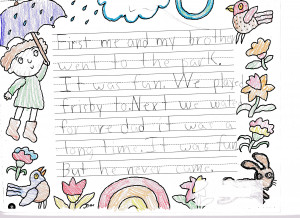 First me and my brother
went to the park.
It was fun. We played
frisby to. Next we wated
for are dad it was a
long time. It was fun
But he never came.